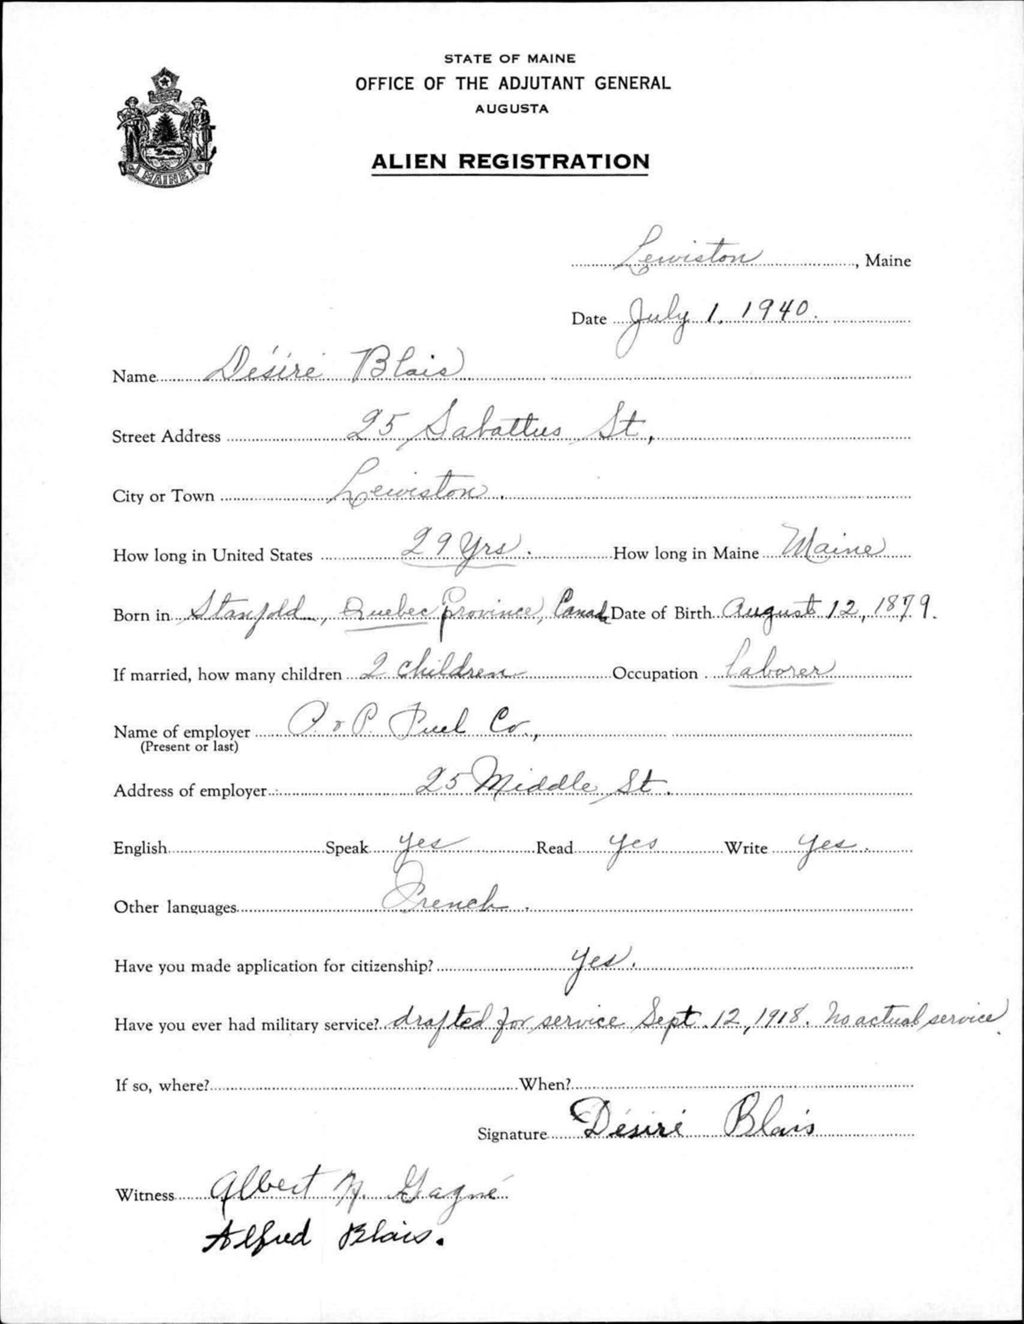 STATE OF MAINE
OFFICE OF THE ADJUTANT GENERAL
AUGUSTA
ALIEN REGISTRATION
MAINE
Lewiston, Maine
Date July 1, 1940.
Name Désiré Blais
Street Address 25 Sabattus St,
City or Town Lewiston.
How long in United States 29 yrs. How long in Maine Maine
Born in Stanfold, Quebec Province, Canada Date of Birth August 12, 1879.
If married, how many children 2 children Occupation laborer
Name of employer P. & P. Fuel Co.,
(Present or last)
Address of employer 25 Middle St.
English Speak yes Read yes Write yes.
Other languages French.
Have you made application for citizenship? yes.
Have you ever had military service? drafted for service Sept. 12, 1918. No actual service.
If so, where? When?
Signature Désiré Blais
Witness Albert N. Gagné
Alfred Blais.